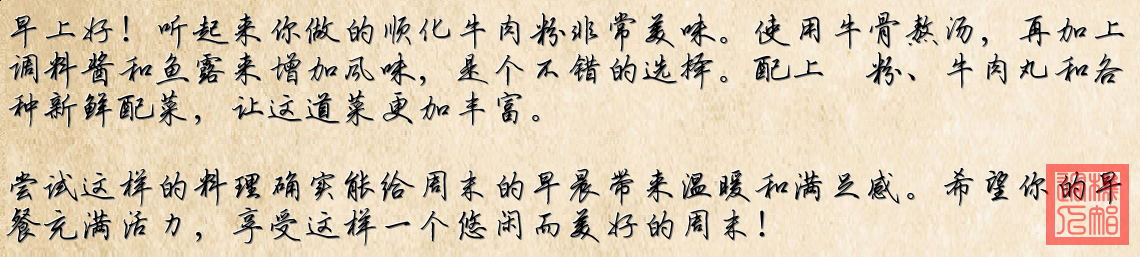 早上好！听起来你做的顺化牛肉粉非常美味。使用牛骨熬汤，再加上
调料酱和鱼露来增加风味，是个不错的选择。配上 粉、牛肉丸和各
种新鲜配菜，让这道菜更加丰富。
尝试这样的料理确实能给周末的早晨带来温暖和满足感。希望你的早
餐充满活力，享受这样一个悠闲而美好的周末！